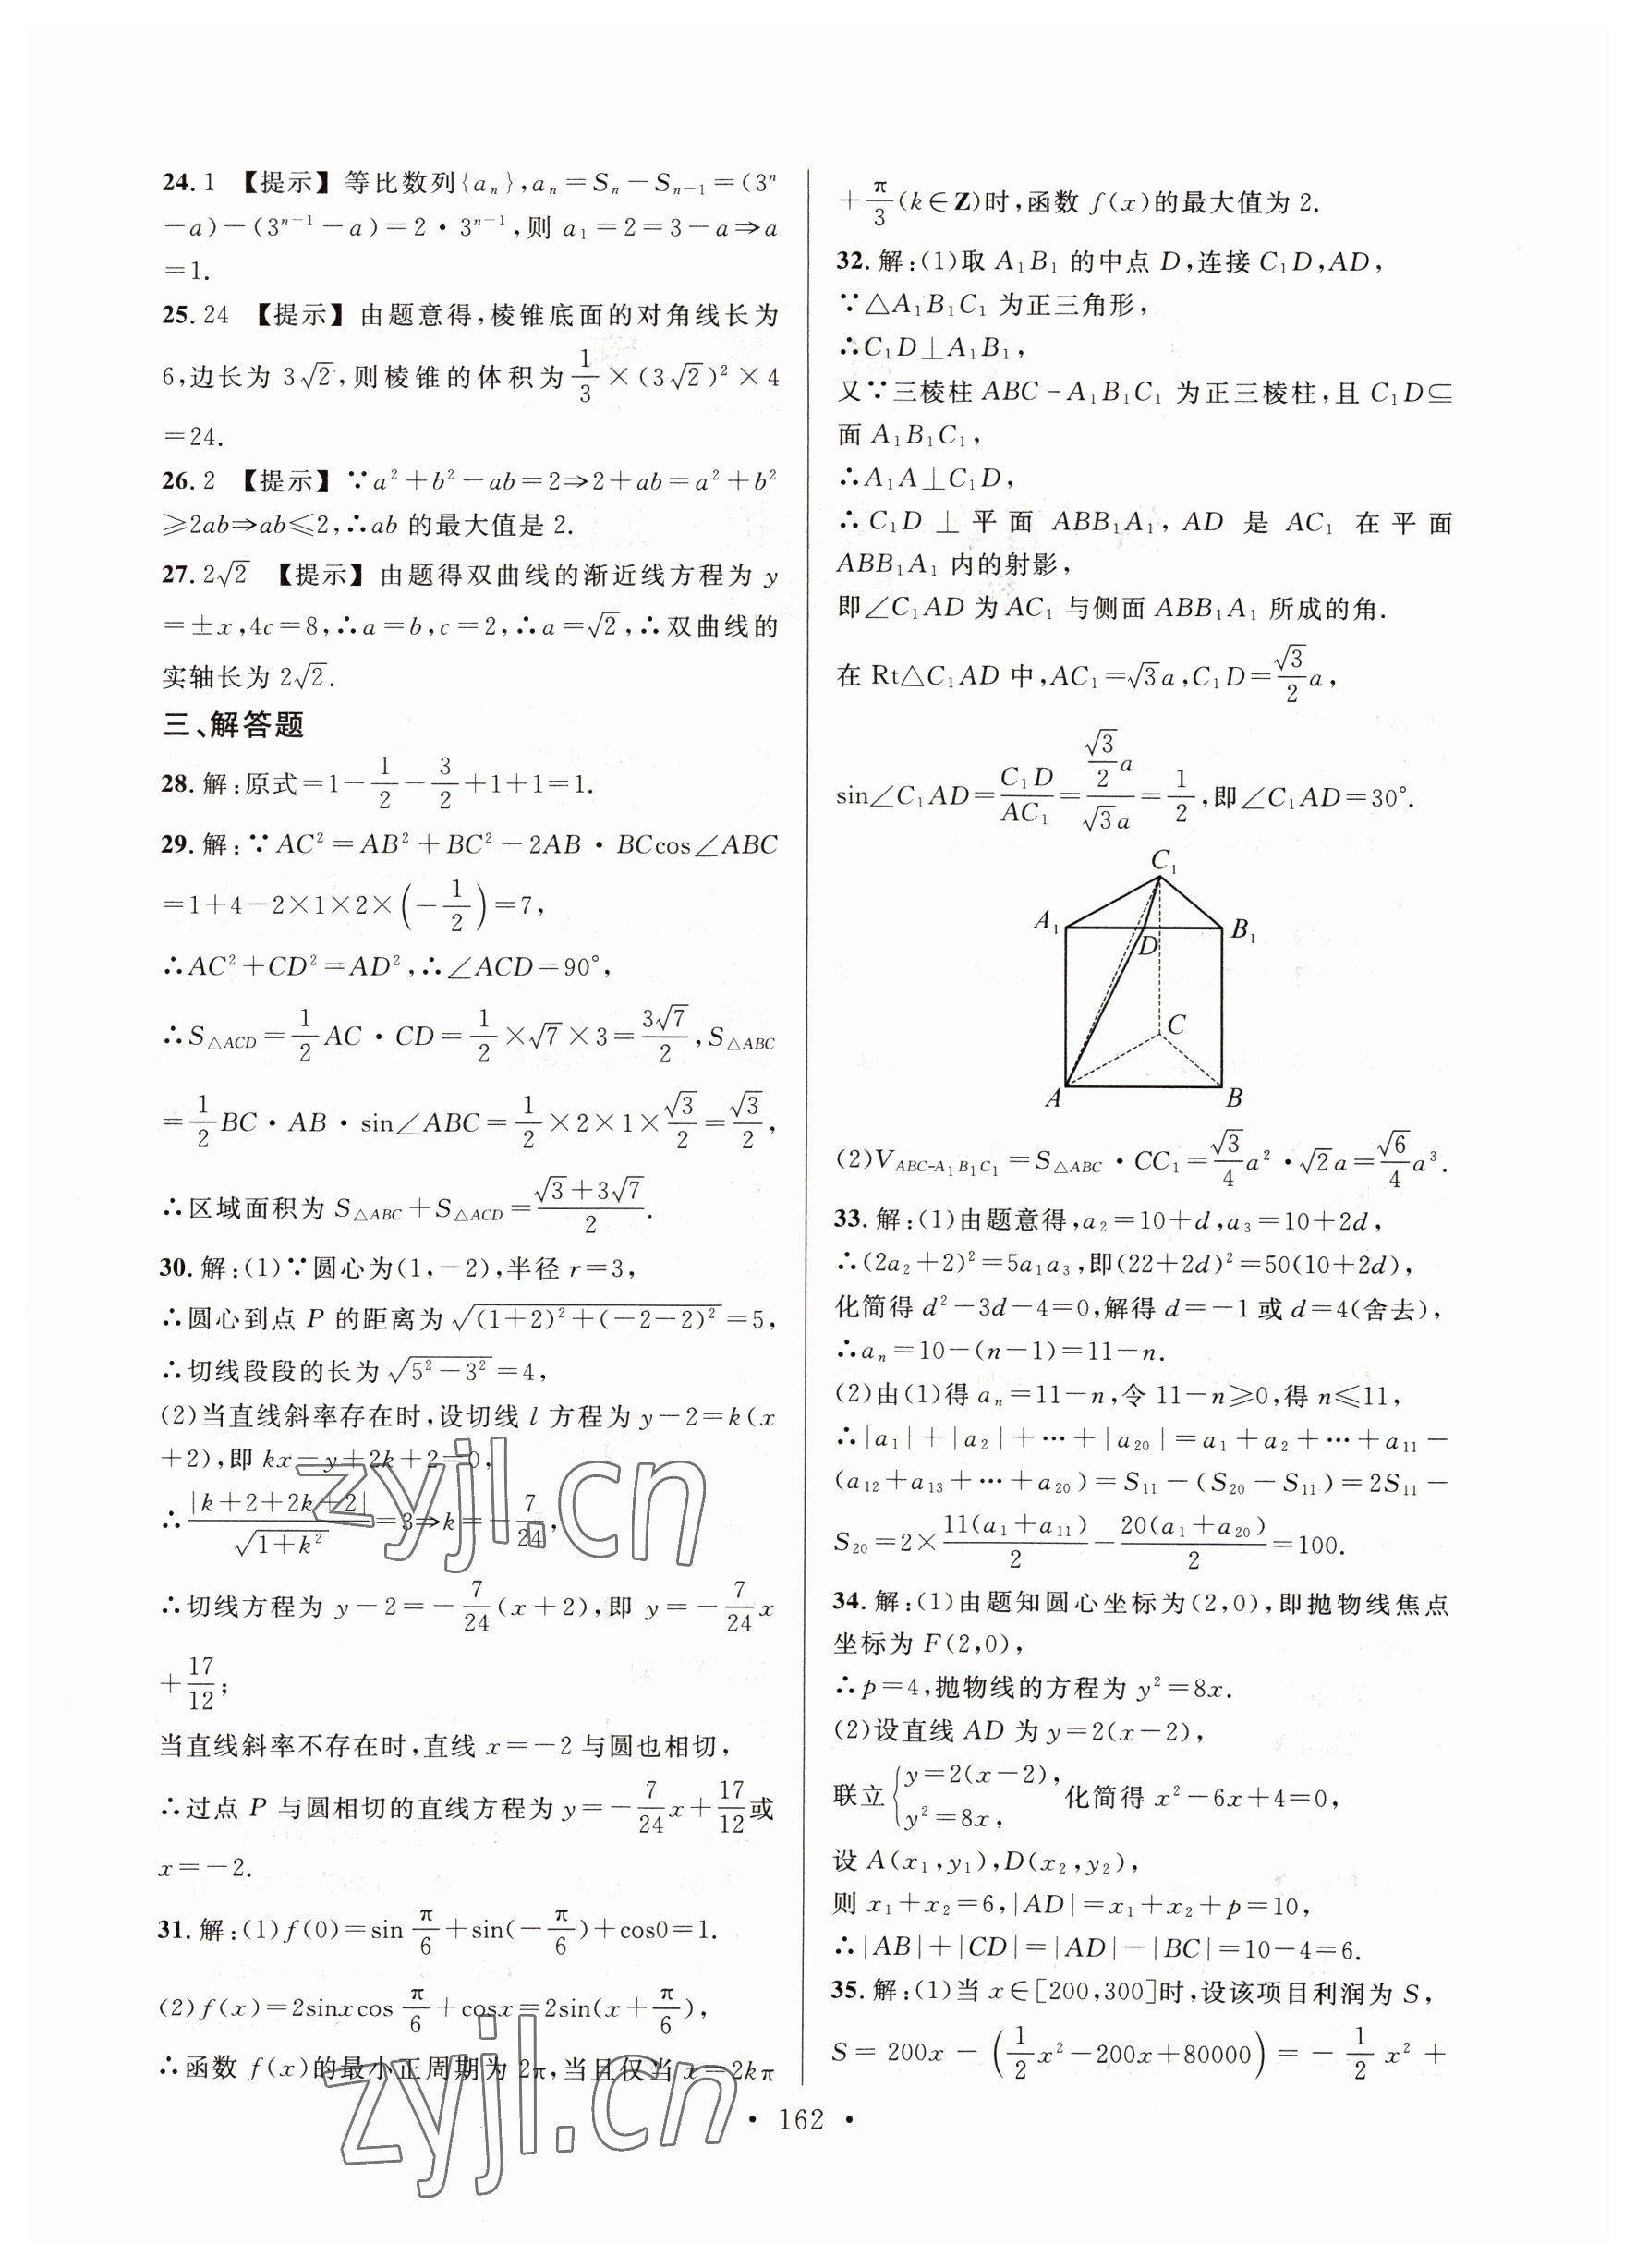 24.1 【提示】等比数列{aₙ},aₙ=Sₙ-Sₙ₋₁=(3ⁿ
-a)-(3ⁿ⁻¹-a)=2·3ⁿ⁻¹,则 a₁=2=3-a⇒a
=1.
25.24 【提示】由题意得,棱锥底面的对角线长为
6,边长为 3√2,则棱锥的体积为 1/3×(3√2)²×4
=24.
26.2 【提示】∵a²+b²-ab=2⇒2+ab=a²+b²
≥2ab⇒ab≤2,∴ab 的最大值是 2.
27.2√2 【提示】由题得双曲线的渐近线方程为 y
=±x,4c=8,∴a=b,c=2,∴a=√2,∴双曲线的
实轴长为 2√2.
三、解答题
28.解:原式=1-1/2-3/2+1+1=1.
29.解:∵AC²=AB²+BC²-2AB·BCcos∠ABC
=1+4-2×1×2×(-1/2)=7,
∴AC²+CD²=AD²,∴∠ACD=90°,
∴S△ACD=1/2AC·CD=1/2×√7×3=3√7/2,S△ABC
=1/2BC·AB·sin∠ABC=1/2×2×1×√3/2=√3/2,
∴区域面积为 S△ABC+S△ACD=(√3+3√7)/2.
30.解:(1)∵圆心为(1,-2),半径 r=3,
∴圆心到点 P 的距离为√((1+2)²+(-2-2)²)=5,
∴切线段段的长为√(5²-3²)=4,
(2)当直线斜率存在时,设切线 l 方程为 y-2=k(x
+2),即 kx-y+2k+2=0,
∴|k+2+2k+2|/√(1+k²)=3⇒k=-7/24,
∴切线方程为 y-2=-7/24(x+2),即 y=-7/24x
+17/12;
当直线斜率不存在时,直线 x=-2 与圆也相切,
∴过点 P 与圆相切的直线方程为 y=-7/24x+17/12或
x=-2.
31.解:(1)f(0)=sin π/6+sin(-π/6)+cos0=1.
(2)f(x)=2sinxcos π/6+cosx=2sin(x+π/6),
∴函数 f(x)的最小正周期为 2π,当且仅当 x=2kπ
+π/3(k∈Z)时,函数 f(x)的最大值为 2.
32.解:(1)取 A₁B₁ 的中点 D,连接 C₁D,AD,
∵△A₁B₁C₁ 为正三角形,
∴C₁D⊥A₁B₁,
又∵三棱柱 ABC-A₁B₁C₁ 为正三棱柱,且 C₁D⊆
面 A₁B₁C₁,
∴A₁A⊥C₁D,
∴C₁D⊥平面 ABB₁A₁,AD 是 AC₁ 在平面
ABB₁A₁ 内的射影,
即∠C₁AD 为 AC₁ 与侧面 ABB₁A₁ 所成的角.
在 Rt△C₁AD 中,AC₁=√3a,C₁D=√3/2a,
sin∠C₁AD=C₁D/AC₁=(√3/2a)/(√3a)=1/2,即∠C₁AD=30°.
C₁
A₁
B₁
D
C
A
B
(2)V_ABC-A₁B₁C₁=S△ABC·CC₁=√3/4a²·√2a=√6/4a³.
33.解:(1)由题意得,a₂=10+d,a₃=10+2d,
∴(2a₂+2)²=5a₁a₃,即(22+2d)²=50(10+2d),
化简得 d²-3d-4=0,解得 d=-1 或 d=4(舍去),
∴aₙ=10-(n-1)=11-n.
(2)由(1)得 aₙ=11-n,令 11-n≥0,得 n≤11,
∴|a₁|+|a₂|+…+|a₂₀|=a₁+a₂+…+a₁₁-
(a₁₂+a₁₃+…+a₂₀)=S₁₁-(S₂₀-S₁₁)=2S₁₁-
S₂₀=2×11(a₁+a₁₁)/2-20(a₁+a₂₀)/2=100.
34.解:(1)由题知圆心坐标为(2,0),即抛物线焦点
坐标为 F(2,0),
∴p=4,抛物线的方程为 y²=8x.
(2)设直线 AD 为 y=2(x-2),
联立{y=2(x-2), y²=8x, 化简得 x²-6x+4=0,
设 A(x₁,y₁),D(x₂,y₂),
则 x₁+x₂=6,|AD|=x₁+x₂+p=10,
∴|AB|+|CD|=|AD|-|BC|=10-4=6.
35.解:(1)当 x∈[200,300]时,设该项目利润为 S,
S=200x-(1/2x²-200x+80000)=-1/2x²+
·162·
zyjl.cn
zyjl.cn